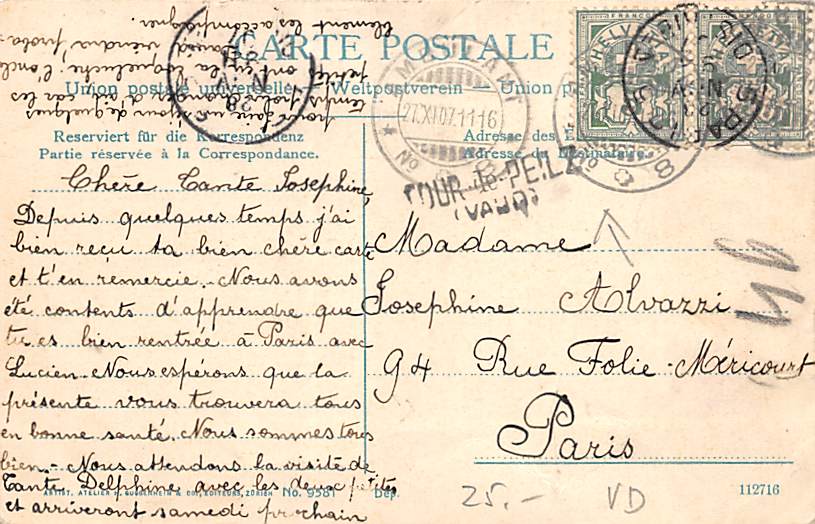 CARTE POSTALE
Union postale universelle. – Weltpostverein – Union po
Reserviert für die Korrespondenz
Partie réservée à la Correspondance.
Adresse des
Adresse du Destinataire.
Chère Tante Josephine,
Depuis quelques temps j'ai
bien reçu ta bien chère carte
et t'en remercie. Nous avons
été contents d'apprendre que
tu es bien rentrée à Paris avec
Lucien. Nous espérons que la
présente vous trouvera tous
en bonne santé. Nous sommes tous
bien. Nous attendons la visite de
Tante Delphine avec les deux petites
et arriveront samedi prochain
pour faire un séjour de quelques
temps
la coqueluche. l'oncle
Louis viendra proba-
blement les accompagner.
Madame
Josephine Alvazzi
94 Rue Folie-Méricourt
Paris
27.XI.07.11
TOUR-de-PEILZ
(VAUD)
FRANCO
HELVETIA
FRANCO
HELVETIA
ARTIST. ATELIER H. GUGGENHEIM & Co., EDITEURS, ZÜRICH No. 9581 Dép.
112716
25.- VD